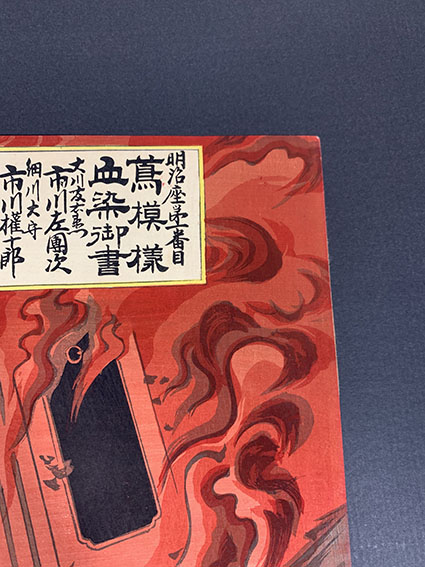 明治座第一番目
蔦模様
血染御書
大川友右衛門
市川左團次
細川大守
市川權十郎